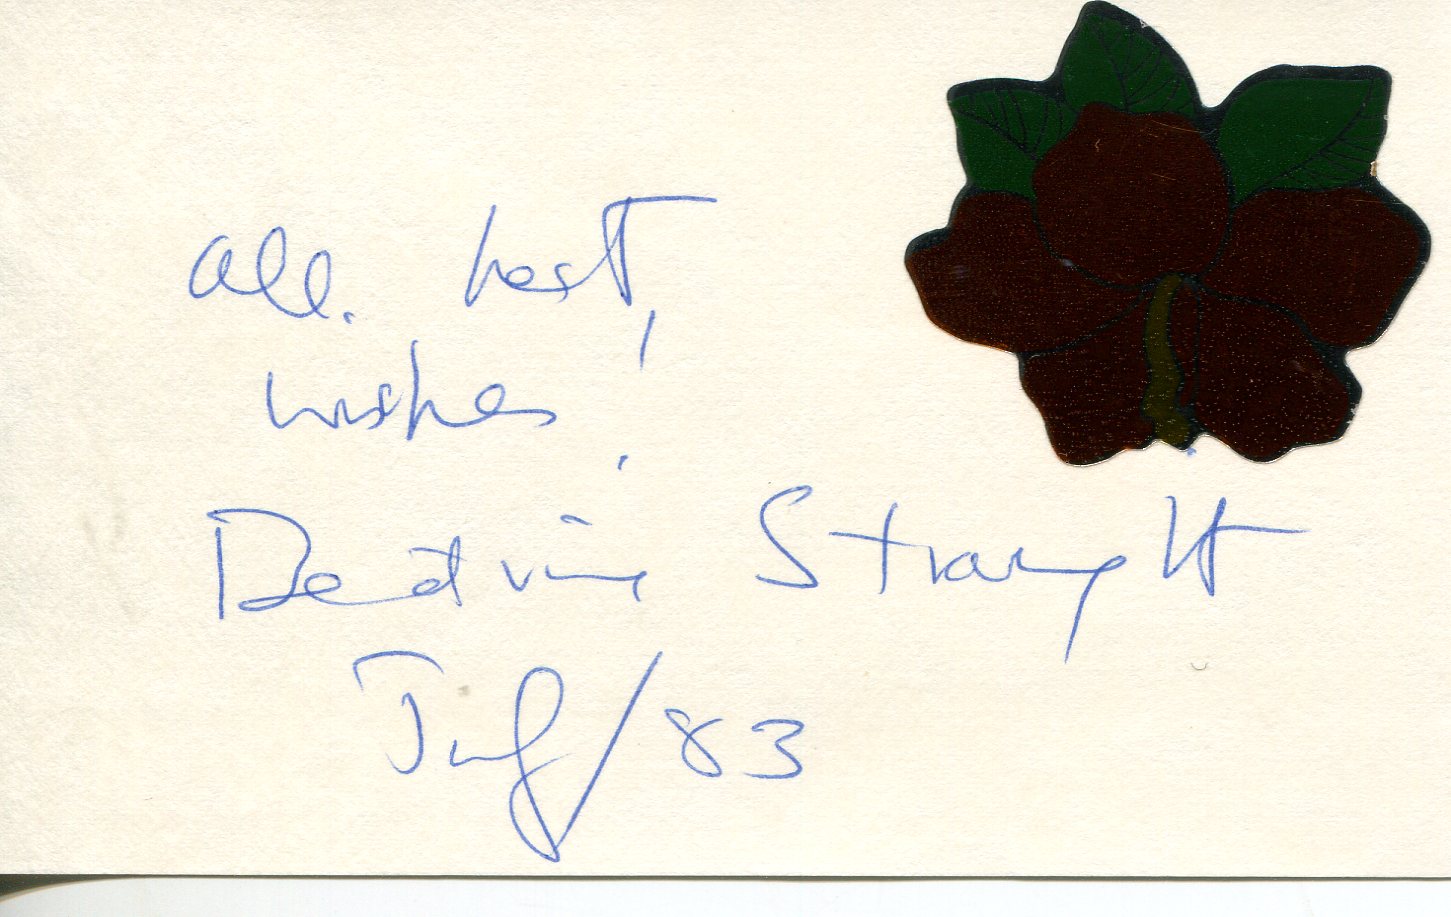 all best
wishes!
Beatrice Straight
July/83